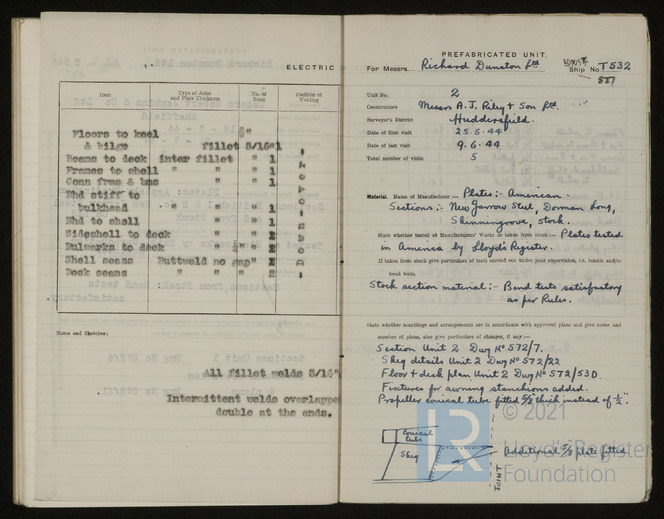 ELECTRIC
Item
Type of Joint and Plate Thickness
No. of Runs
Position of Welding
Floors to keel
& bilge fillet 3/16" 1
Beams to deck inter fillet " 1
Frames to shell " " " 1
Conn frms & bms " " 1
Bhd stiff to
bulkhead " " 1
Bhd to shell " " 1
Sideshell to deck " " 2
Bulwarks to deck " 2
Shell seams Buttweld no gap" 2
Deck seams " " " 2
Notes and Sketches:
All fillet welds 3/16"
Intermittent welds overlappe
double at the ends.
PREFABRICATED UNIT.
For Messrs. Richard Dunston Ltd Ship No. T532
527
Unit No. 2
Constructors Messrs A.J. Riley & Son Ltd.
Surveyor's District Huddersfield.
Date of first visit 25.5.44
Date of last visit 9.6.44
Total number of visits 5
Material. Name of Manufacturer :— Plates:- American.
Sections:- New Jarrow Steel, Dorman Long,
Skinningrove, Stock.
State whether tested at Manufacturers' Works or taken from stock :— Plates tested
in America by Lloyd's Register.
If taken from stock give particulars of tests carried out under your supervision, i.e. tensile and/or
bend tests.
Stock section material:- Bend tests satisfactory
as per Rules.
State whether scantlings and arrangements are in accordance with approved plans and give name and
number of plans, also give particulars of changes, if any :—
Section Unit 2 Dwg No 572/7.
Skeg details Unit 2 Dwg No 572/22
Floor & deck plan Unit 2 Dwg No 572/53D.
Fixtures for awning stanchions added.
Propeller conical tube fitted 5/8" thick instead of 1/2".
Conical
tube
Skeg
Additional 5/8 plate fitted
JOINT
© 2021
Lloyd's Register
Foundation